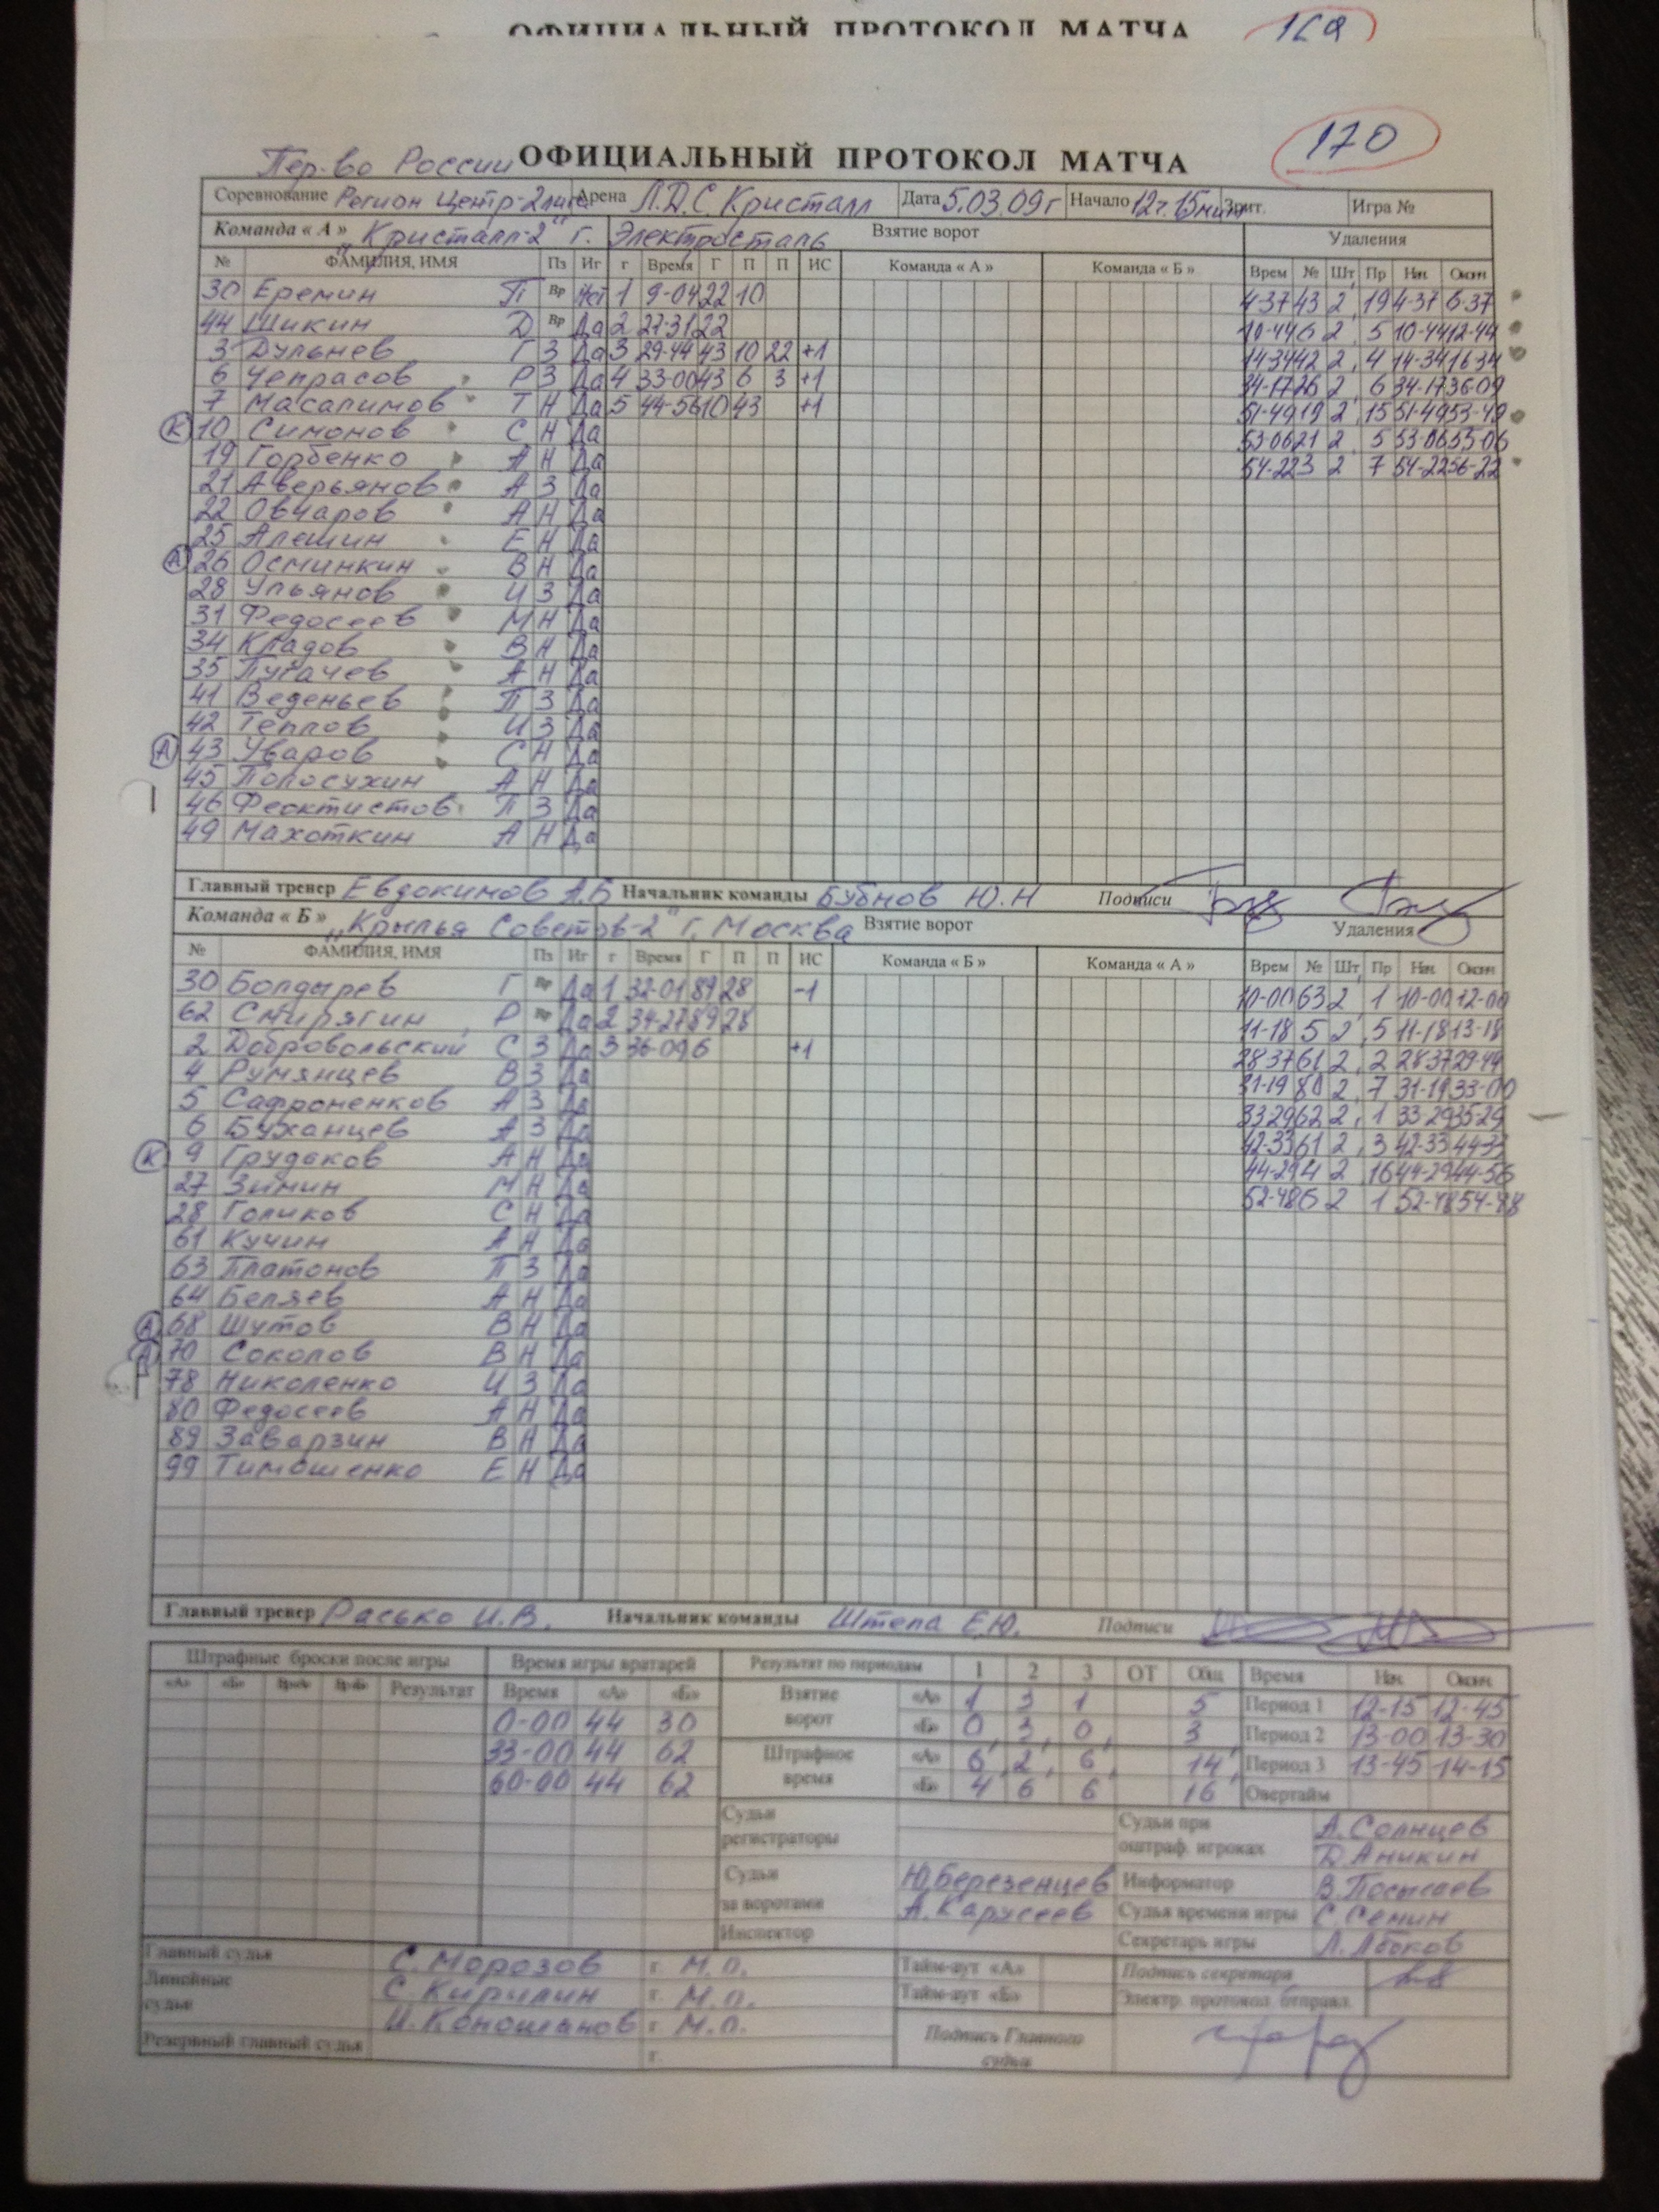 ОФИЦИАЛЬНЫЙ ПРОТОКОЛ МАТЧА
170
Пер-во России ОФИЦИАЛЬНЫЙ ПРОТОКОЛ МАТЧА
Соревнование Регион Центр-2 лига Арена Л.Д.С. Кристалл Дата 5.03.09г Начало 12ч.15мин Зрит. Игра №
Команда « А » „Кристалл-2" г. Электросталь Взятие ворот Удаления
№ ФАМИЛИЯ, ИМЯ Пз Иг г Время Г П П ИС Команда « А » Команда « Б » Врем № Шт Пр Нач. Оконч
30 Еремин П Вр Нет 1 9-04 22 10 4-37 43 2 19 4-37 6-37
44 Шикин Д Вр Да 2 27-31 22 10-44 6 2 5 10-44 12-44
3 Дульнев Г З Да 3 29-44 43 10 22 +1 14-34 42 2 4 14-34 16-34
6 Чепрасов Р З Да 4 33-00 43 6 3 +1 34-17 26 2 6 34-17 36-09
7 Масалимов Т Н Да 5 44-56 10 43 +1 51-49 19 2 15 51-49 53-49
К 10 Симонов С Н Да 53-06 21 2 5 53-06 55-06
19 Горбенко А Н Да 54-22 3 2 7 54-22 56-22
21 Аверьянов А З Да
22 Овчаров А Н Да
25 Алешин Е Н Да
А 26 Осминкин В Н Да
28 Ульянов И З Да
31 Федосеев М Н Да
34 Кладов В Н Да
35 Пугачев А Н Да
41 Веденьев П З Да
42 Теплов И З Да
А 43 Уваров С Н Да
45 Полосухин А Н Да
46 Феоктистов П З Да
49 Махоткин А Н Да
Главный тренер Евдокимов А.Б Начальник команды Бубнов Ю.Н Подписи
Команда « Б » „Крылья Советов-2" г. Москва Взятие ворот Удаления
№ ФАМИЛИЯ, ИМЯ Пз Иг г Время Г П П ИС Команда « Б » Команда « А » Врем № Шт Пр Нач. Оконч
30 Болдырев Г Вр Да 1 32-01 89 28 -1 10-00 63 2 1 10-00 12-00
62 Смирягин Р Вр Да 2 34-27 89 28 11-18 5 2 5 11-18 13-18
2 Добровольский С З Да 3 36-09 6 +1 28-37 61 2 2 28-37 29-44
4 Румянцев В З Да 31-19 80 2 7 31-19 33-00
5 Сафроненков А З Да 33-29 62 2 1 33-29 35-29
6 Буханцев А З Да 42-33 61 2 3 42-33 44-33
К 9 Грудаков А Н Да 44-29 4 2 16 44-29 44-56
27 Зимин М Н Да 52-48 6 2 1 52-48 54-48
28 Голиков С Н Да
61 Кучин А Н Да
63 Платонов П З Да
64 Беляев А Н Да
А 68 Шутов В Н Да
А 70 Соколов В Н Да
78 Николенко И З Да
80 Федосеев А Н Да
89 Заварзин В Н Да
99 Тимошенко Е Н Да
Главный тренер Расько И.В. Начальник команды Штепа Е.Ю. Подписи
Штрафные броски после игры Время игры вратарей Результат по периодам 1 2 3 ОТ Общ Время Нач. Оконч
«А» «Б» Вр«А» Вр«Б» Результат Время «А» «Б» Взятие ворот «А» 1 3 1 5 Период 1 12-15 12-45
0-00 44 30 «Б» 0 3 0 3 Период 2 13-00 13-30
33-00 44 62 Штрафное время «А» 6 2 6 14 Период 3 13-45 14-15
60-00 44 62 «Б» 4 6 6 16 Овертайм
Судьи регистраторы Судьи при оштраф. игроках А.Солнцев
Д.Аникин
Судьи за воротами Ю.Березенцев Информатор
А.Карусеев Судья времени игры С.Семин
Инспектор Секретарь игры
Главный судья С.Морозов г. М.О. Тайм-аут «А» Подпись секретаря
Линейные судьи С.Кирилин г. М.О. Тайм-аут «Б» Электр. протокол отправл.
г. М.О. Подпись Главного судьи
Резервный главный судья г.